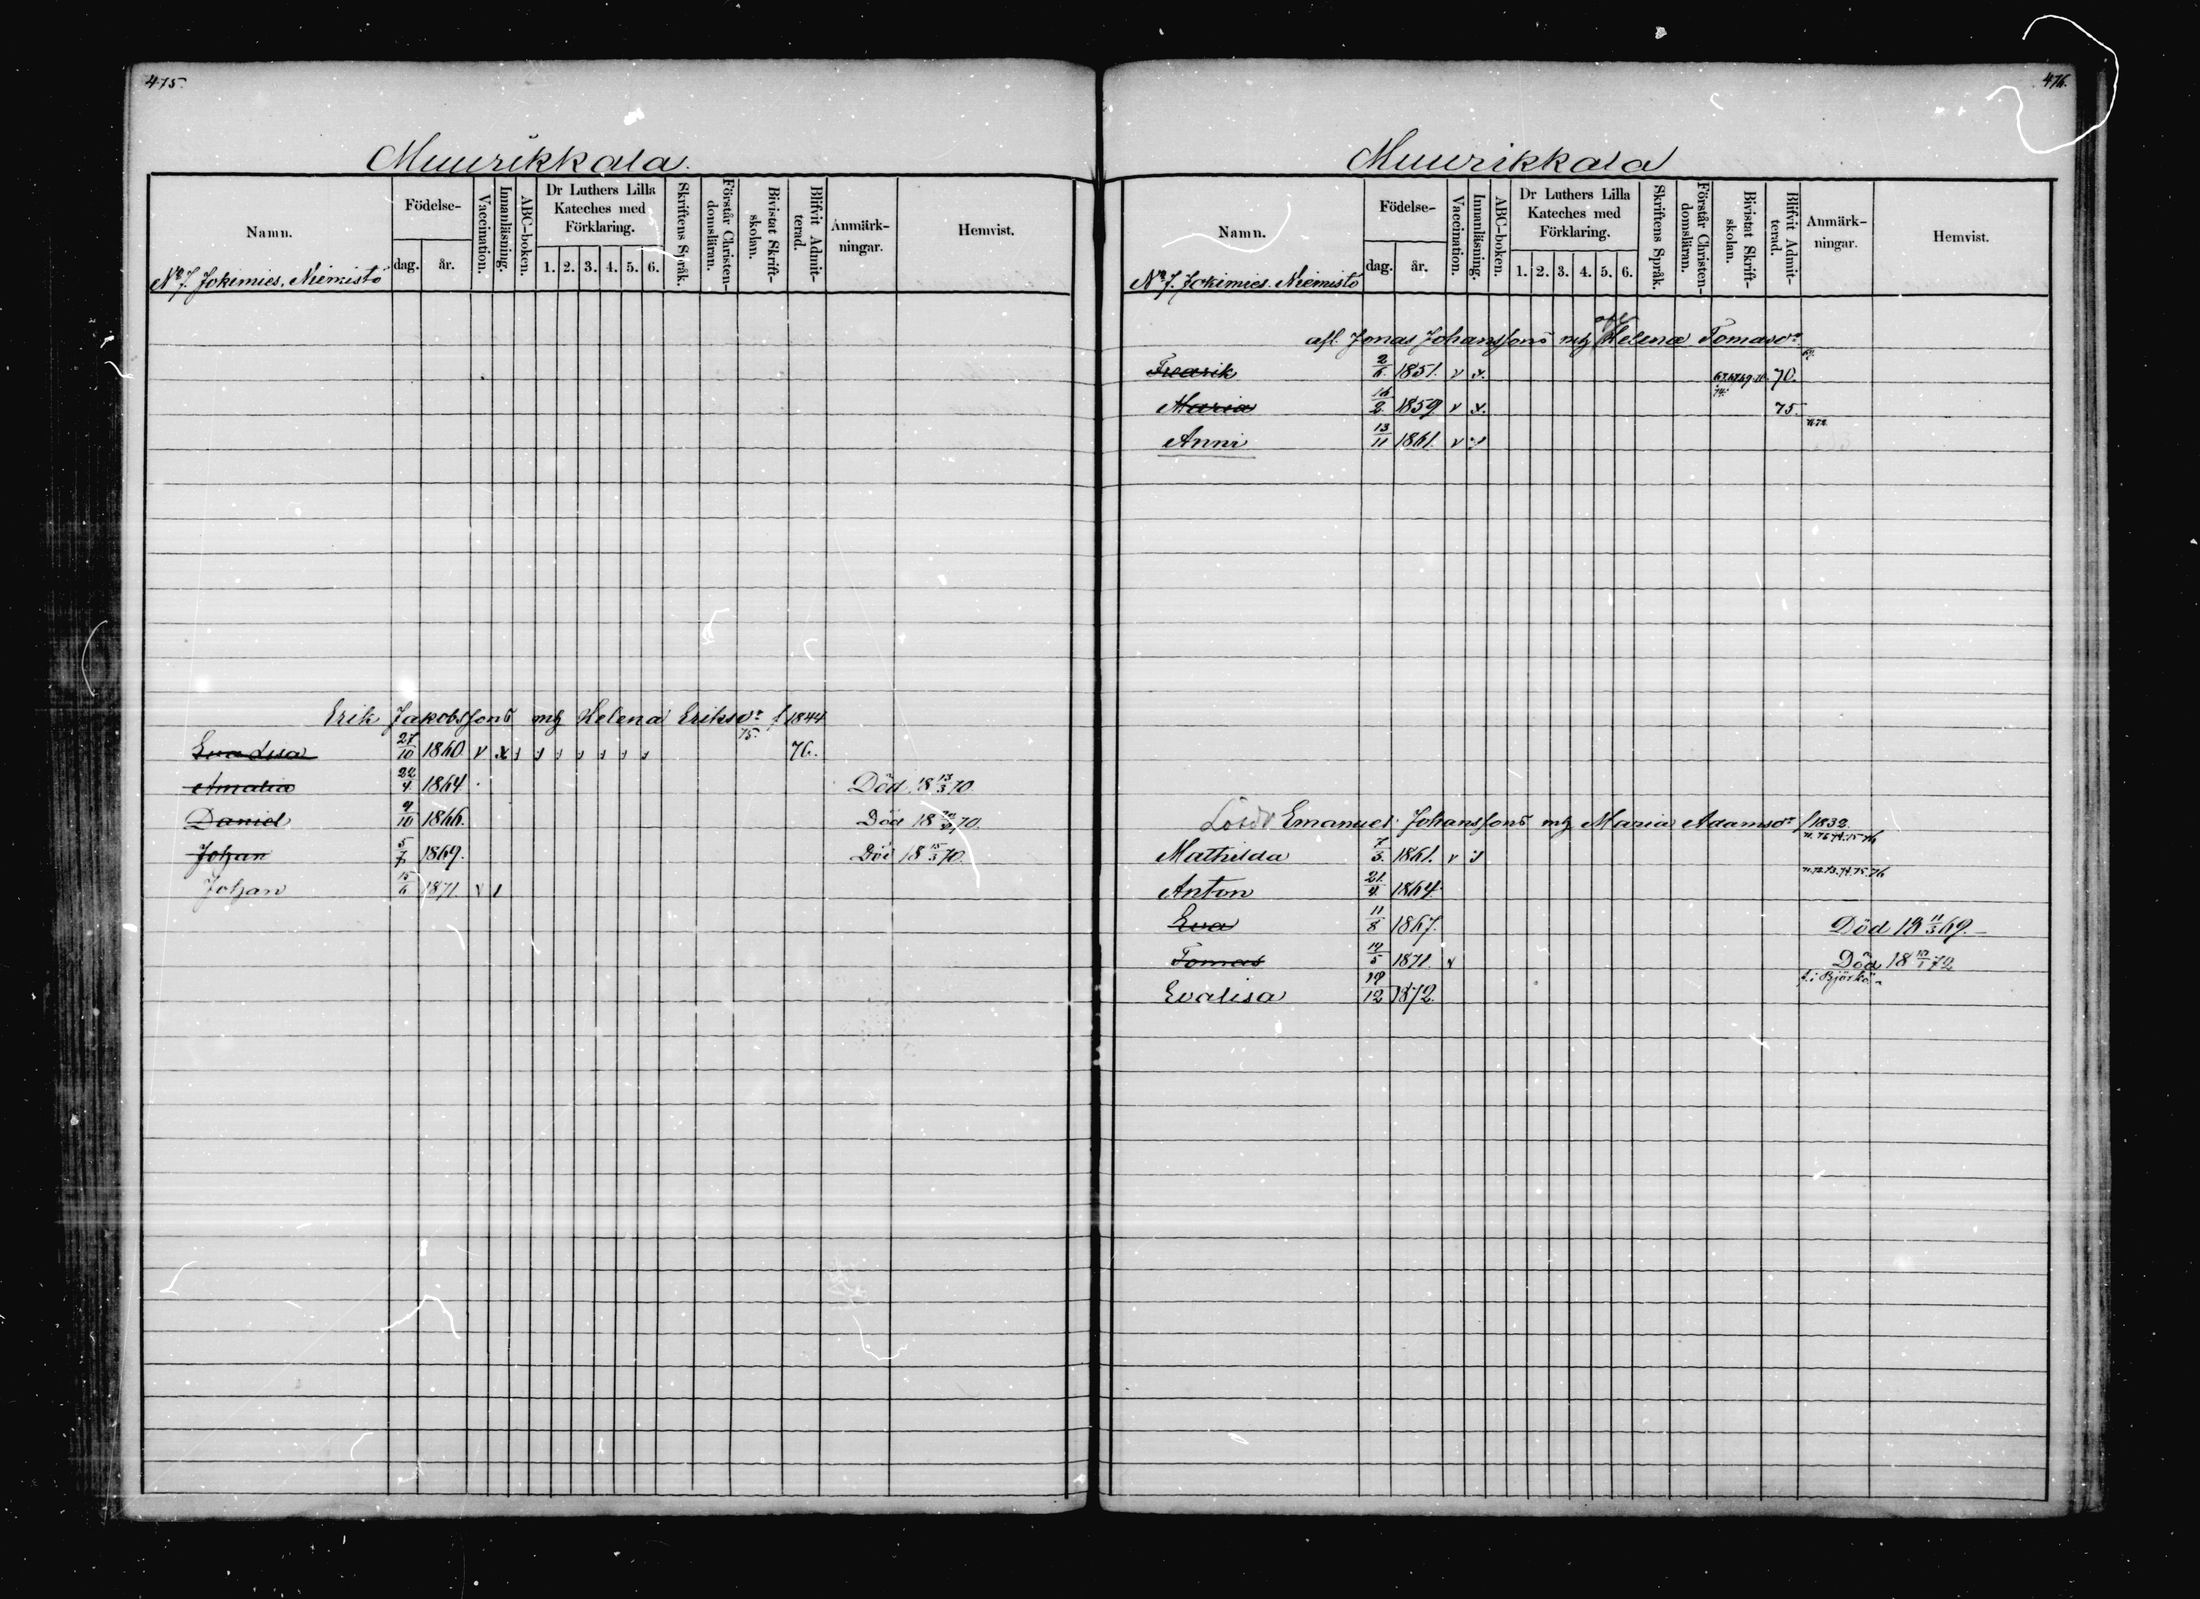 475.
Muurikkala.
Namn. Födelse- dag. år. Vaccination. Innanläsning. ABC-boken. Dr Luthers Lilla Kateches med Förklaring. 1. 2. 3. 4. 5. 6. Skriftens Språk. Förstår Christendomsläran. Bivistat Skriftskolan. Blifvit Admitterad. Anmärkningar. Hemvist.
No 7. Jokimies, Niemistö
Erik Jakobssons mg Helena Eriksdr f 1844
75.
Eva Lisa 27/10 1860 v x 76.
Amalia 22/4 1864 Död 18 13/3 70.
Daniel 9/10 1866. Död 18 70.
Johan 5/7 1869. Död 18 15/3 70.
Johan 15/6 1871 v
476.
Muurikkala
Namn. Födelse- dag. år. Vaccination. Innanläsning. ABC-boken. Dr Luthers Lilla Kateches med Förklaring. 1. 2. 3. 4. 5. 6. Skriftens Språk. Förstår Christendomsläran. Bivistat Skriftskolan. Blifvit Admitterad. Anmärkningar. Hemvist.
No 7. Jokimies. Niemistö
afl. Jonas Johanssons mg afl Helena Tomasdr
Fredrik 2/6 1851. v x. 70.
Maria 16/2 1859 v x. 75.
Anni 13/11 1861. v
Emanuel Johanssons mg Maria Adamsdr f 1832
Mathilda 7/3 1861. v
71.72.73.74.75.76
Anton 21/4 1864.
Eva 11/8 1867. Död 18 11/3 69.
Tomas 19/5 1871. v Död 18 72
f. i Björkö
Evalisa 19/12 1872.